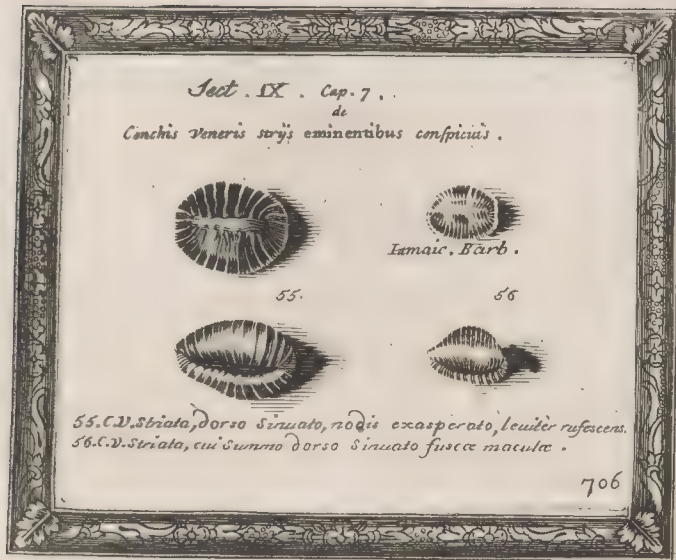 Sect. IX. Cap. 7.
de
Conchis Veneris strijs eminentibus conspicuis.
Iamaic. Barb.
55.
56
55. C.V. Striata, dorso Sinuato, nodis exasperato, leuiter rufescens.
56. C.V. Striata, cui Summo dorso Sinuato fuscæ maculæ.
706